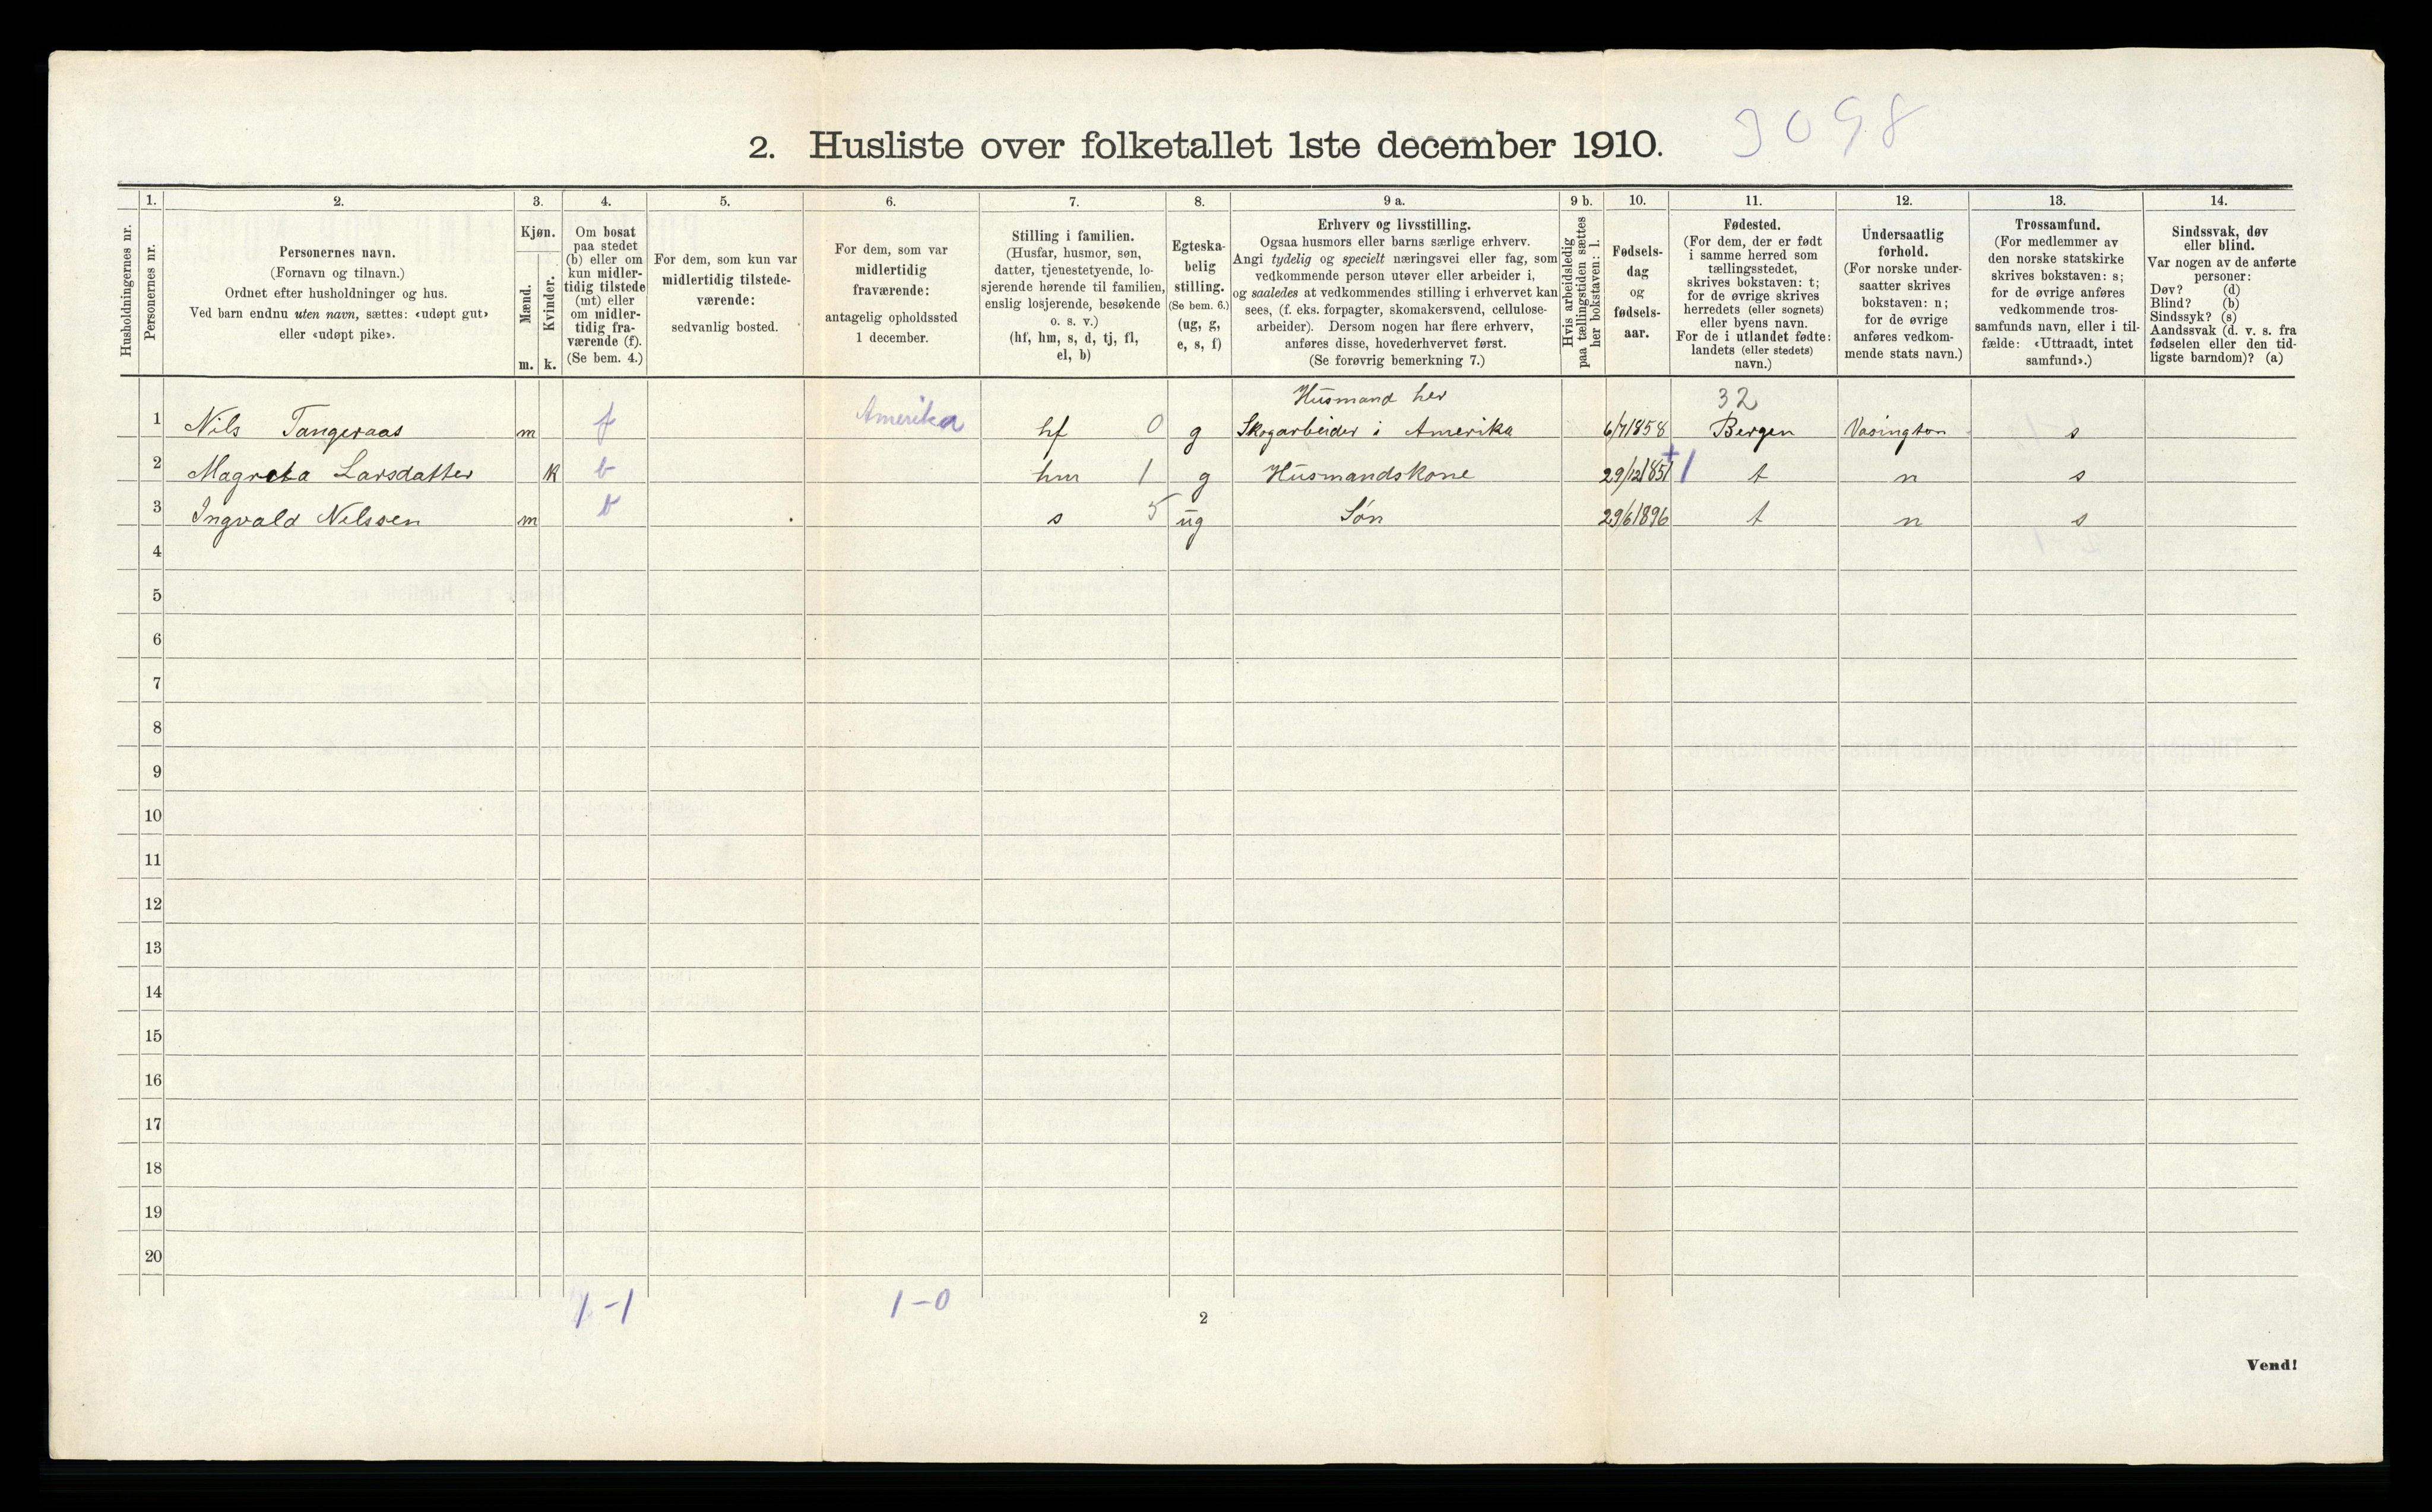 2. Husliste over folketallet 1ste december 1910. 3098
1. 2. 3. 4. 5. 6. 7. 8. 9 a. 9 b. 10. 11. 12. 13. 14.
Husholdningernes nr.
Personernes nr.
Personernes navn.
(Fornavn og tilnavn.)
Ordnet efter husholdninger og hus.
Ved barn endnu uten navn, sættes: «udøpt gut»
eller «udøpt pike».
Kjøn.
Mænd.
Kvinder.
m. k.
Om bosat
paa stedet
(b) eller om
kun midler-
tidig tilstede
(mt) eller
om midler-
tidig fra-
værende (f).
(Se bem. 4.)
For dem, som kun var
midlertidig tilstede-
værende:
sedvanlig bosted.
For dem, som var
midlertidig
fraværende:
antagelig opholdssted
1 december.
Stilling i familien.
(Husfar, husmor, søn,
datter, tjenestetyende, lo-
sjerende hørende til familien,
enslig losjerende, besøkende
o. s. v.)
(hf, hm, s, d, tj, fl,
el, b)
Egteska-
belig
stilling.
(Se bem. 6.)
(ug, g,
e, s, f)
Erhverv og livsstilling.
Ogsaa husmors eller barns særlige erhverv.
Angi tydelig og specielt næringsvei eller fag, som
vedkommende person utøver eller arbeider i,
og saaledes at vedkommendes stilling i erhvervet kan
sees, (f. eks. forpagter, skomakersvend, cellulose-
arbeider). Dersom nogen har flere erhverv,
anføres disse, hovederhvervet først.
(Se forøvrig bemerkning 7.)
Hvis arbeidsledig
paa tællingstiden sættes
her bokstaven: l.
Fødsels-
dag
og
fødsels-
aar.
Fødested.
(For dem, der er født
i samme herred som
tællingsstedet,
skrives bokstaven: t;
for de øvrige skrives
herredets (eller sognets)
eller byens navn.
For de i utlandet fødte:
landets (eller stedets)
navn.)
Undersaatlig
forhold.
(For norske under-
saatter skrives
bokstaven: n;
for de øvrige
anføres vedkom-
mende stats navn.)
Trossamfund.
(For medlemmer av
den norske statskirke
skrives bokstaven: s;
for de øvrige anføres
vedkommende tros-
samfunds navn, eller i til-
fælde: «Uttraadt, intet
samfund».)
Sindssvak, døv
eller blind.
Var nogen av de anførte
personer:
Døv? (d)
Blind? (b)
Sindssyk? (s)
Aandssvak (d. v. s. fra
fødselen eller den tid-
ligste barndom)? (a)
Husmand her 32
1 Nils Tangeraas m f Amerika hf 0 g Skogarbeider i Amerika 6/7/858 Bergen Vasington s
2 Magreta Larsdatter k b hm 1 g Husmandskone 29/12/851 + 1 t n s
3 Ingvald Nilssen m b s 5 ug Søn 29/6/896 t n s
4
5
6
7
8
9
10
11
12
13
14
15
16
17
18
19
20
1-1 1-0
2
Vend!